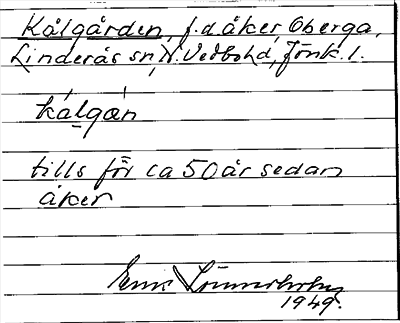 Kålgården, f.d. åker Oberga,
Linderås sn, N. Vedbo hd, Jönk. l.
kålgæn
tills för ca 50 år sedan
åker
1949.